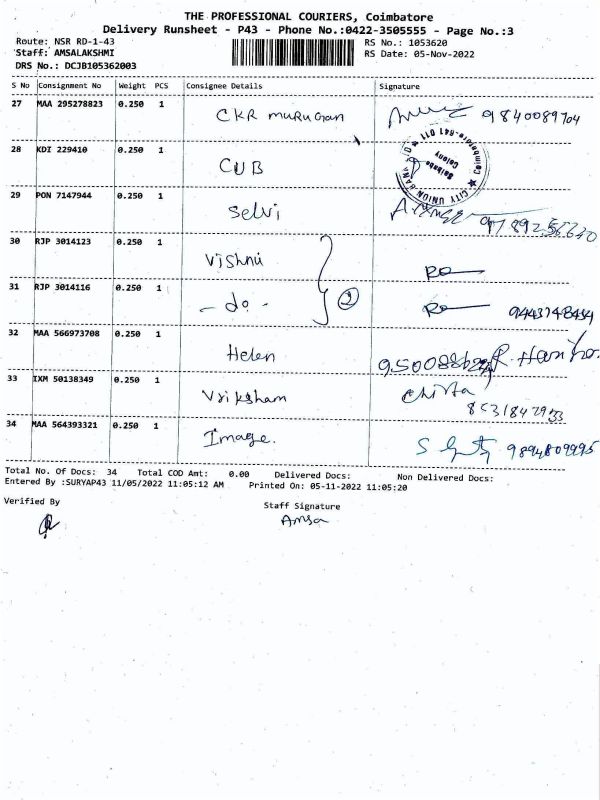 THE PROFESSIONAL COURIERS, Coimbatore
Delivery Runsheet - P43 - Phone No.:0422-3505555 - Page No.:3
Route: NSR RD-1-43
RS No.: 1053620
Staff: AMSALAKSHMI
RS Date: 05-Nov-2022
DRS No.: DCJB105362003
S No Consignment No Weight PCS Consignee Details Signature
27 MAA 295278823 0.250 1 CKR MURUGAN 9840089704
28 KDI 229410 0.250 1 CUB
CITY UNION BANK Coimbatore-641 011 Saibaba Colony
29 PON 7147944 0.250 1 Selvi
30 RJP 3014123 0.250 1 Vishnu
31 RJP 3014116 0.250 1 - do - 2
32 MAA 566973708 0.250 1 Helen
33 IXM 50138349 0.250 1 Vriksham
34 MAA 564393321 0.250 1 Image. 9894809995
Total No. Of Docs: 34 Total COD Amt: 0.00 Delivered Docs: Non Delivered Docs:
Entered By :SURYAP43 11/05/2022 11:05:12 AM Printed On: 05-11-2022 11:05:20
Verified By
Staff Signature
Amsa